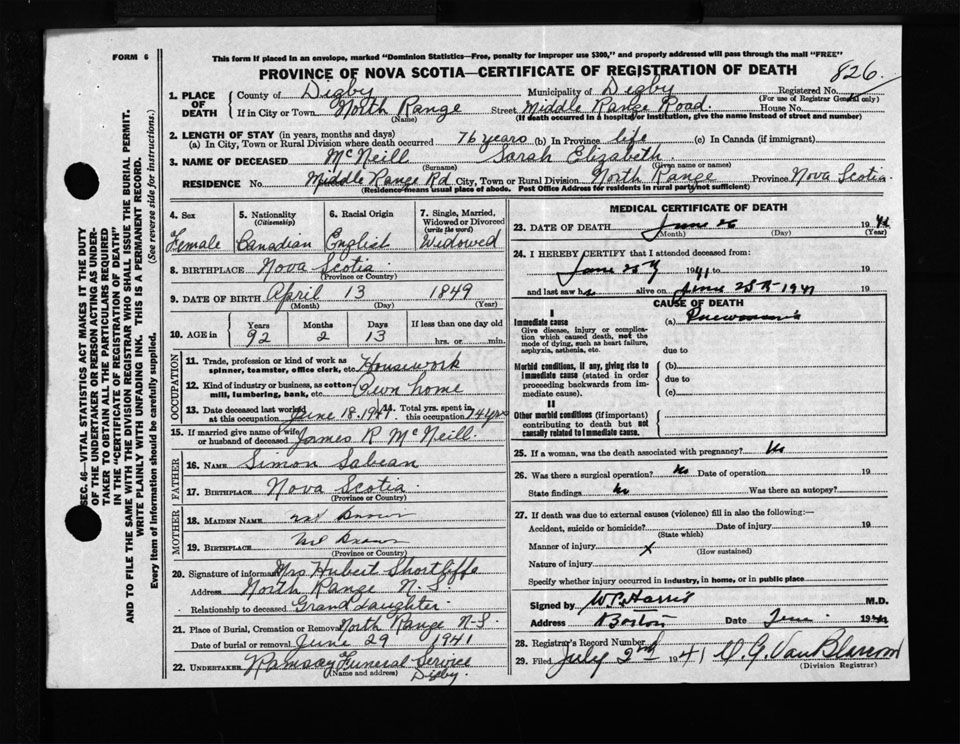 FORM 6
This form if placed in an envelope, marked "Dominion Statistics—Free, penalty for improper use $300," and properly addressed will pass through the mail "FREE"
PROVINCE OF NOVA SCOTIA—CERTIFICATE OF REGISTRATION OF DEATH
826
SEC. 46—VITAL STATISTICS ACT MAKES IT THE DUTY
OF THE UNDERTAKER OR PERSON ACTING AS UNDER-
TAKER TO OBTAIN ALL THE PARTICULARS REQUIRED
IN THE "CERTIFICATE OF REGISTRATION OF DEATH"
AND TO FILE THE SAME WITH THE DIVISION REGISTRAR WHO SHALL ISSUE THE BURIAL PERMIT.
WRITE PLAINLY WITH UNFADING INK. THIS IS A PERMANENT RECORD.
Every item of information should be carefully supplied. (See reverse side for instructions.)
1. PLACE OF DEATH
County of Digby Municipality of Digby Registered No.
(For use of Registrar General only)
If in City or Town North Range Street Middle Range Road. House No.
(Name) (If death occurred in a hospital or institution, give the name instead of street and number)
2. LENGTH OF STAY (in years, months and days)
(a) In City, Town or Rural Division where death occurred 76 years (b) In Province life (c) In Canada (if immigrant)
3. NAME OF DECEASED McNeill Sarah Elizabeth
(Surname) (Given name or names)
RESIDENCE No. Middle Range Rd City, Town or Rural Division North Range Province Nova Scotia
(Residence means usual place of abode. Post Office Address for residents in rural parts not sufficient)
4. Sex
Female
5. Nationality
(Citizenship)
Canadian
6. Racial Origin
English
7. Single, Married,
Widowed or Divorced
(write the word)
Widowed
8. BIRTHPLACE Nova Scotia
(Province or Country)
9. DATE OF BIRTH April 13 1849
(Month) (Day) (Year)
10. AGE in Years Months Days If less than one day old
92 2 13 hrs. or min.
OCCUPATION
11. Trade, profession or kind of work as
spinner, teamster, office clerk, etc. Housework
12. Kind of industry or business, as cotton-
mill, lumbering, bank, etc. Own home
13. Date deceased last worked
at this occupation June 18, 1941
14. Total yrs. spent in
this occupation 74 yrs
15. If married give name of wife
or husband of deceased James R McNeill.
FATHER
16. NAME Simon Sabean
17. BIRTHPLACE Nova Scotia
(Province or Country)
MOTHER
18. MAIDEN NAME
19. BIRTHPLACE
(Province or Country)
20. Signature of informant Mrs Hubert Shortliffe
Address North Range N.S.
Relationship to deceased Granddaughter
21. Place of Burial, Cremation or Removal North Range N.S.
Date of burial or removal June 29 1941
22. UNDERTAKER Ramsay Funeral Service
(Name and address) Digby.
MEDICAL CERTIFICATE OF DEATH
23. DATE OF DEATH June 26 1941
(Month) (Day) (Year)
24. I HEREBY CERTIFY that I attended deceased from:
June 1941 to 19
and last saw h alive on June 25th 1941
CAUSE OF DEATH
I
Immediate cause
Give disease, injury or complica-
tion which caused death, not the
mode of dying, such as heart failure,
asphyxia, asthenia, etc.
(a) Pneumonia
due to
Morbid conditions, if any, giving rise to
immediate cause (stated in order
proceeding backwards from im-
mediate cause).
(b)
due to
(c)
II
Other morbid conditions (if important)
contributing to death but not
causally related to immediate cause.
25. If a woman, was the death associated with pregnancy? No
26. Was there a surgical operation? No Date of operation 19
State findings No Was there an autopsy?
27. If death was due to external causes (violence) fill in also the following:—
Accident, suicide or homicide? Date of injury 19
(State which)
Manner of injury X
(How sustained)
Nature of injury
Specify whether injury occurred in industry, in home, or in public place
Signed by M.D.
Address 19
28. Registrar's Record Number
29. Filed July 2nd 1941 VanBlarcom
(Division Registrar)